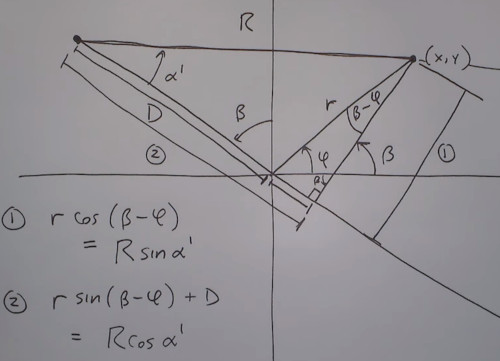 R
(x, y)
α'
r
β-φ
β
D
②
φ
β
①
① r cos (β-φ)
= R sin α'
② r sin (β-φ) + D
= R cos α'